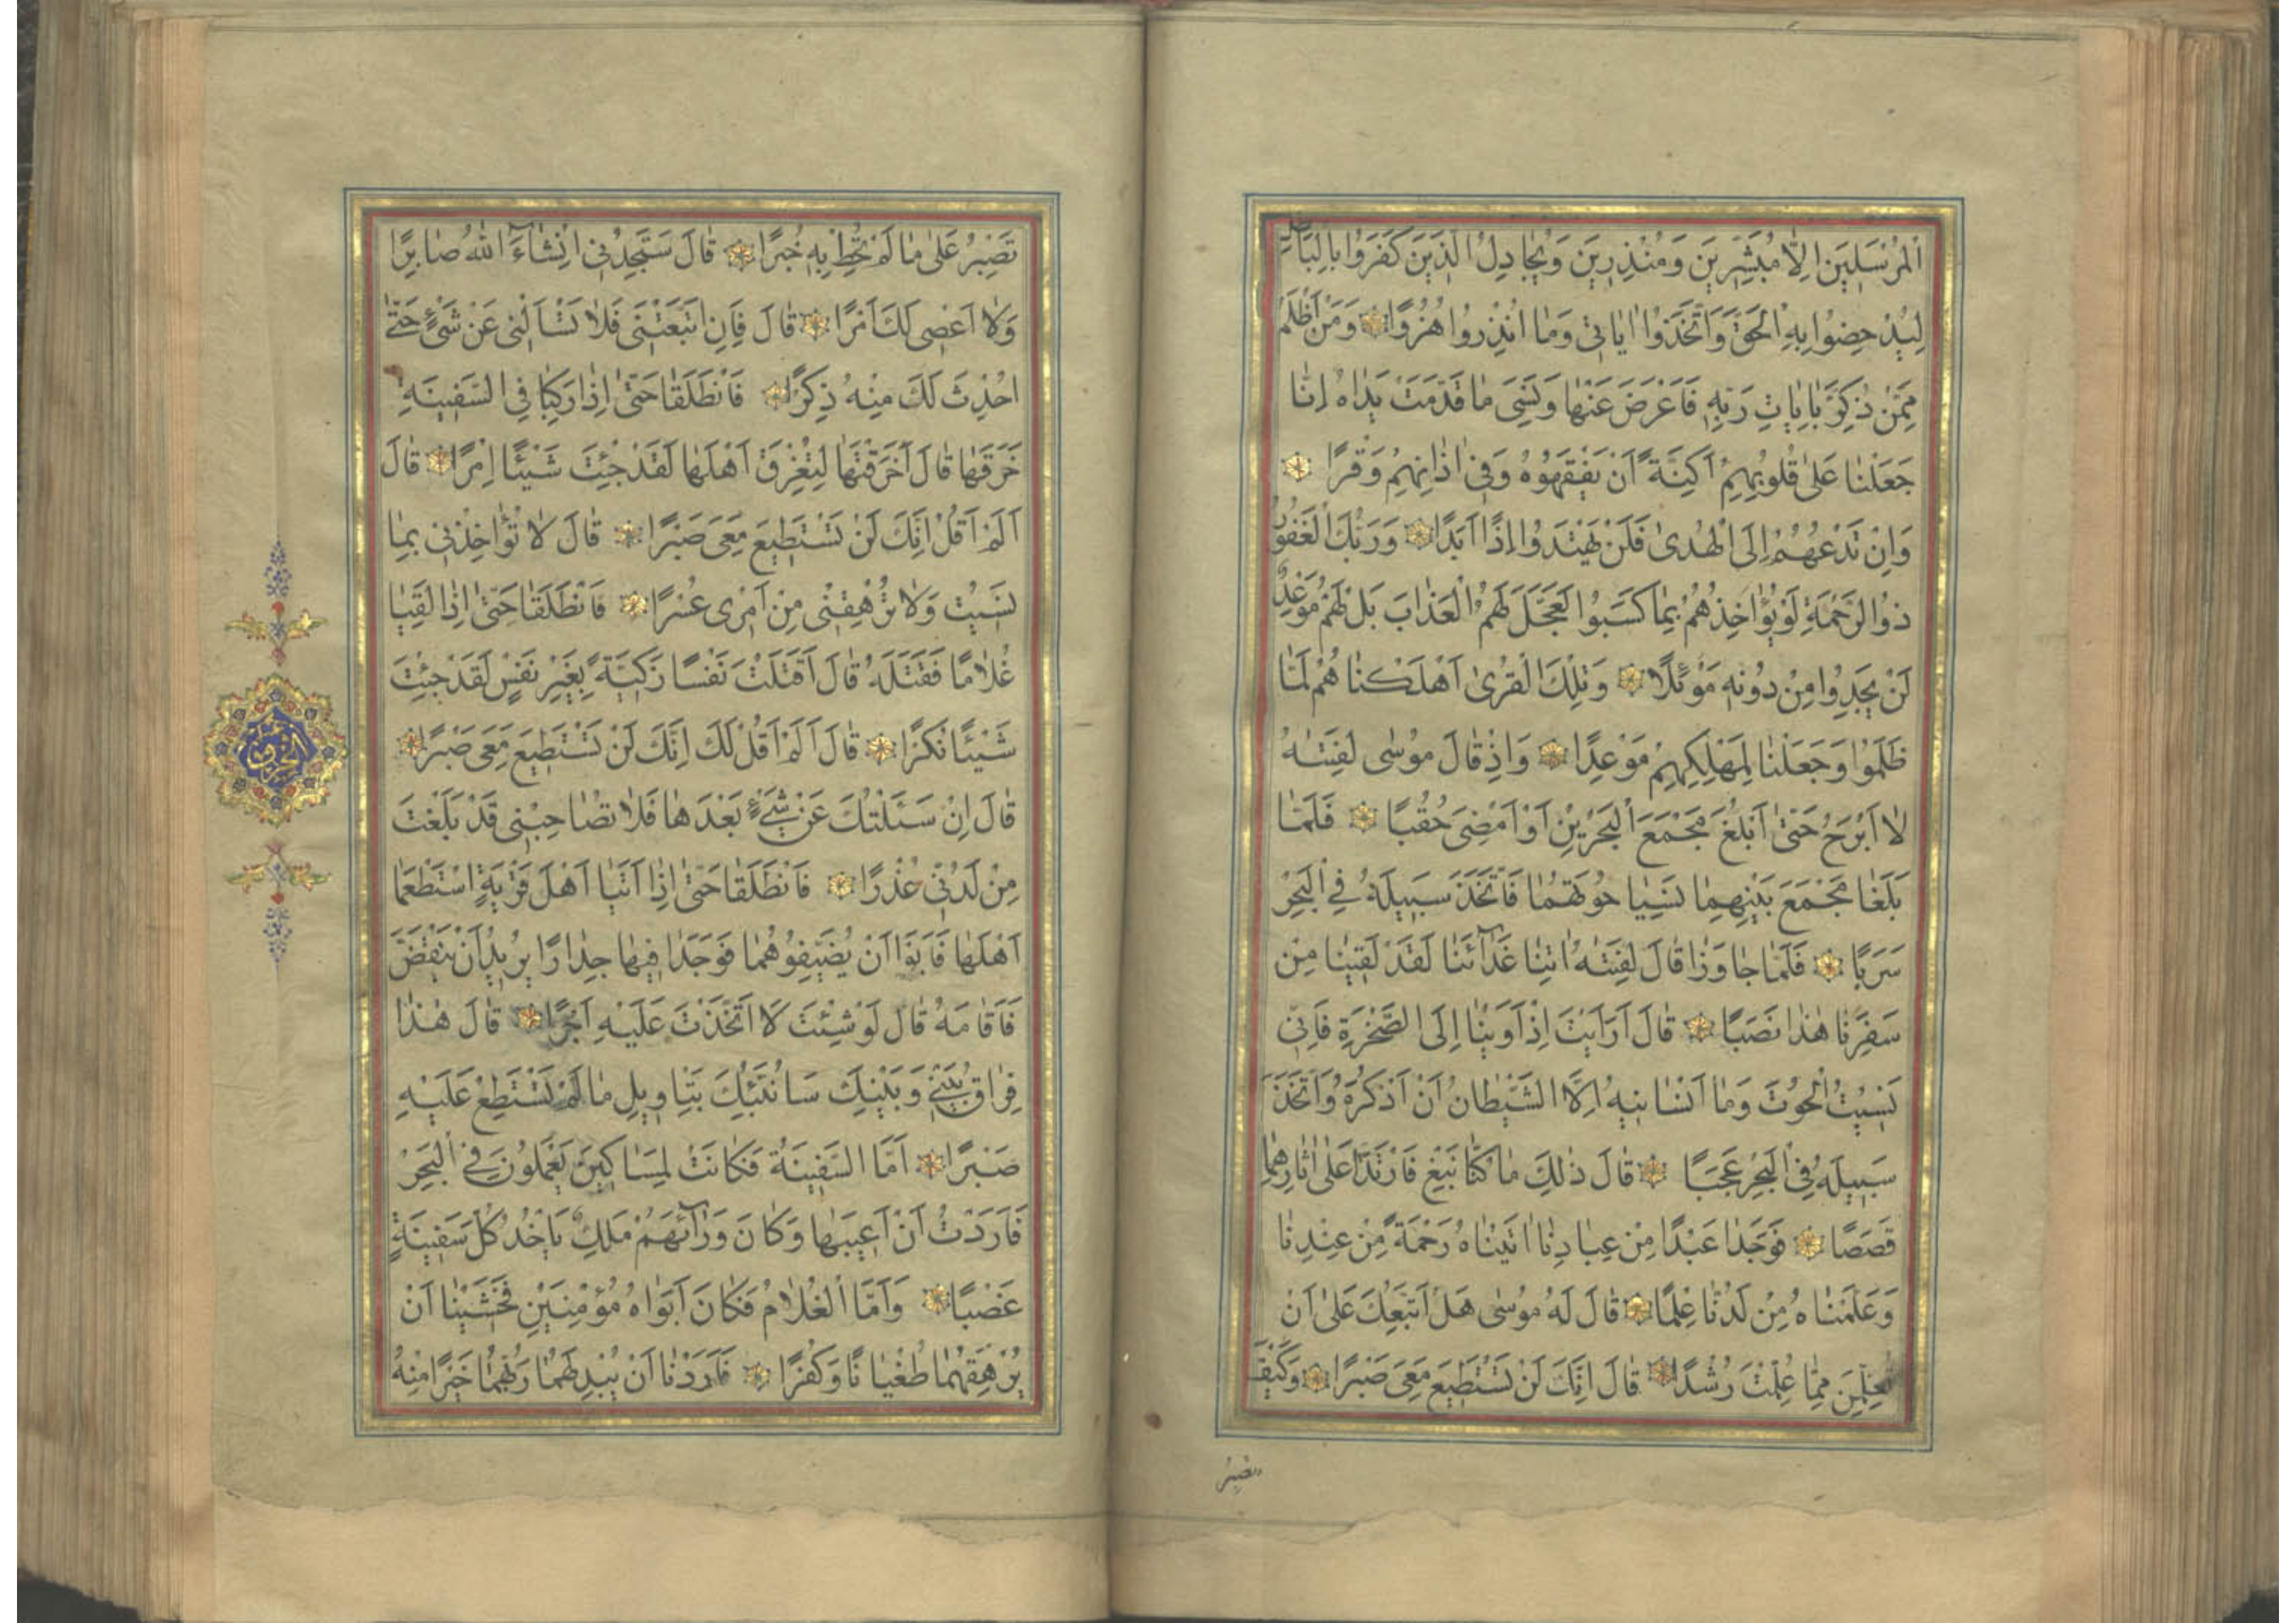 الْمُرْسَلِينَ اِلَّا مُبَشِّرِينَ وَمُنْذِرِينَ وَيُجَادِلُ الَّذِينَ كَفَرُوا بِالْبَاطِلِ
لِيُدْحِضُوا بِهِ الْحَقَّ وَاتَّخَذُوا اٰيَاتِى وَمَا اُنْذِرُوا هُزُوًا وَمَنْ اَظْلَمُ
مِمَّنْ ذُكِّرَ بِاٰيَاتِ رَبِّهِ فَاَعْرَضَ عَنْهَا وَنَسِىَ مَا قَدَّمَتْ يَدَاهُ اِنَّا
جَعَلْنَا عَلٰى قُلُوبِهِمْ اَكِنَّةً اَنْ يَفْقَهُوهُ وَفِى اٰذَانِهِمْ وَقْرًا
وَاِنْ تَدْعُهُمْ اِلَى الْهُدٰى فَلَنْ يَهْتَدُوا اِذًا اَبَدًا وَرَبُّكَ الْغَفُورُ
ذُوا الرَّحْمَةِ لَوْ يُؤَاخِذُهُمْ بِمَا كَسَبُوا لَعَجَّلَ لَهُمُ الْعَذَابَ بَلْ لَهُمْ مَوْعِدٌ
لَنْ يَجِدُوا مِنْ دُونِهِ مَوْئِلًا وَتِلْكَ الْقُرٰى اَهْلَكْنَا هُمْ لَمَّا
ظَلَمُوا وَجَعَلْنَا لِمَهْلِكِهِمْ مَوْعِدًا وَاِذْ قَالَ مُوسٰى لِفَتٰيهُ
لَا اَبْرَحُ حَتّٰى اَبْلُغَ مَجْمَعَ الْبَحْرَيْنِ اَوْ اَمْضِىَ حُقُبًا فَلَمَّا
بَلَغَا مَجْمَعَ بَيْنِهِمَا نَسِيَا حُوتَهُمَا فَاتَّخَذَ سَبِيلَهُ فِى الْبَحْرِ
سَرَبًا فَلَمَّا جَاوَزَا قَالَ لِفَتٰيهُ اٰتِنَا غَدَآئَنَا لَقَدْ لَقِينَا مِنْ
سَفَرِنَا هٰذَا نَصَبًا قَالَ اَرَاَيْتَ اِذْ اَوَيْنَا اِلَى الصَّخْرَةِ فَاِنِّى
نَسِيتُ الْحُوتَ وَمَا اَنْسَانِيهُ اِلَّا الشَّيْطَانُ اَنْ اَذْكُرَهُ وَاتَّخَذَ
سَبِيلَهُ فِى الْبَحْرِ عَجَبًا قَالَ ذٰلِكَ مَا كُنَّا نَبْغِ فَارْتَدَّا عَلٰى اٰثَارِهِمَا
قَصَصًا فَوَجَدَا عَبْدًا مِنْ عِبَادِنَا اٰتَيْنَاهُ رَحْمَةً مِنْ عِنْدِنَا
وَعَلَّمْنَاهُ مِنْ لَدُنَّا عِلْمًا قَالَ لَهُ مُوسٰى هَلْ اَتَّبِعُكَ عَلٰى اَنْ
تُعَلِّمَنِ مِمَّا عُلِّمْتَ رُشْدًا قَالَ اِنَّكَ لَنْ تَسْتَطِيعَ مَعِىَ صَبْرًا وَكَيْفَ
تصبر
تَصْبِرُ عَلٰى مَا لَمْ تُحِطْ بِهِ خُبْرًا قَالَ سَتَجِدُنِى اِنْشَآءَ اللّٰهُ صَابِرًا
وَلَا اَعْصِى لَكَ اَمْرًا قَالَ فَاِنِ اتَّبَعْتَنِى فَلَا تَسْاَلْنِى عَنْ شَىْءٍ حَتّٰى
اُحْدِثَ لَكَ مِنْهُ ذِكْرًا فَانْطَلَقَا حَتّٰى اِذَا رَكِبَا فِى السَّفِينَةِ
خَرَقَهَا قَالَ اَخَرَقْتَهَا لِتُغْرِقَ اَهْلَهَا لَقَدْ جِئْتَ شَيْئًا اِمْرًا قَالَ
اَلَمْ اَقُلْ اِنَّكَ لَنْ تَسْتَطِيعَ مَعِىَ صَبْرًا قَالَ لَا تُؤَاخِذْنِى بِمَا
نَسِيتُ وَلَا تُرْهِقْنِى مِنْ اَمْرِى عُسْرًا فَانْطَلَقَا حَتّٰى اِذَا لَقِيَا
غُلَامًا فَقَتَلَهُ قَالَ اَقَتَلْتَ نَفْسًا زَكِيَّةً بِغَيْرِ نَفْسٍ لَقَدْ جِئْتَ
شَيْئًا نُكْرًا قَالَ اَلَمْ اَقُلْ لَكَ اِنَّكَ لَنْ تَسْتَطِيعَ مَعِىَ صَبْرًا
قَالَ اِنْ سَئَلْتُكَ عَنْ شَىْءٍ بَعْدَهَا فَلَا تُصَاحِبْنِى قَدْ بَلَغْتَ
مِنْ لَدُنِّى عُذْرًا فَانْطَلَقَا حَتّٰى اِذَا اَتَيَا اَهْلَ قَرْيَةٍ اسْتَطْعَمَا
اَهْلَهَا فَاَبَوْا اَنْ يُضَيِّفُوهُمَا فَوَجَدَا فِيهَا جِدَارًا يُرِيدُ اَنْ يَنْقَضَّ
فَاَقَامَهُ قَالَ لَوْ شِئْتَ لَاتَّخَذْتَ عَلَيْهِ اَجْرًا قَالَ هٰذَا
فِرَاقُ بَيْنِى وَبَيْنِكَ سَاُنَبِّئُكَ بِتَاْوِيلِ مَا لَمْ تَسْتَطِعْ عَلَيْهِ
صَبْرًا اَمَّا السَّفِينَةُ فَكَانَتْ لِمَسَاكِينَ يَعْمَلُونَ فِى الْبَحْرِ
فَاَرَدْتُ اَنْ اَعِيبَهَا وَكَانَ وَرَآئَهُمْ مَلِكٌ يَاْخُذُ كُلَّ سَفِينَةٍ
غَصْبًا وَاَمَّا الْغُلَامُ فَكَانَ اَبَوَاهُ مُؤْمِنَيْنِ فَخَشِينَا اَنْ
يُرْهِقَهُمَا طُغْيَانًا وَكُفْرًا فَاَرَدْنَا اَنْ يُبْدِلَهُمَا رَبُّهُمَا خَيْرًا مِنْهُ